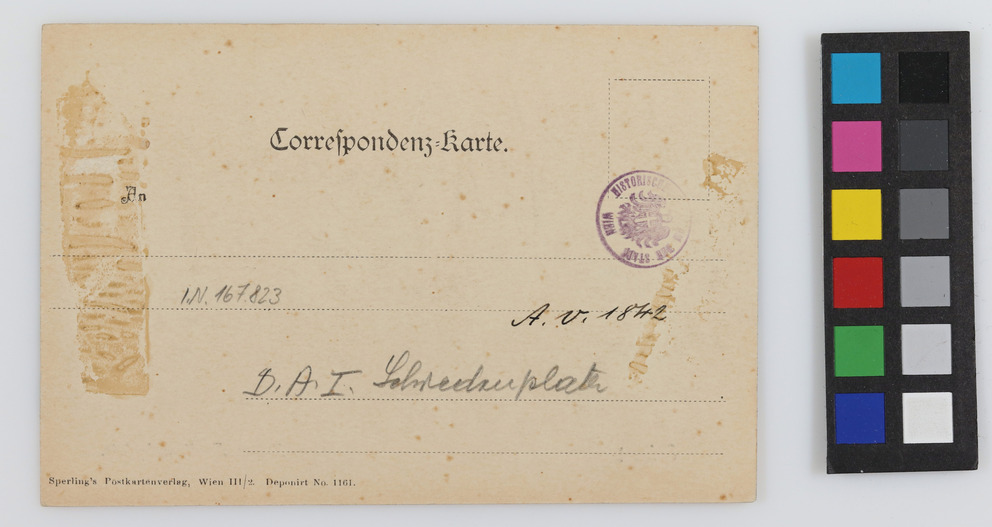 Correſpondenz-Karte.
An
HISTORISCHE DER STADT WIEN
I.N. 167.823
A. V. 1842
D. A. I.
Sperling's Postkartenverlag, Wien III/2. Deponirt No. 1161.